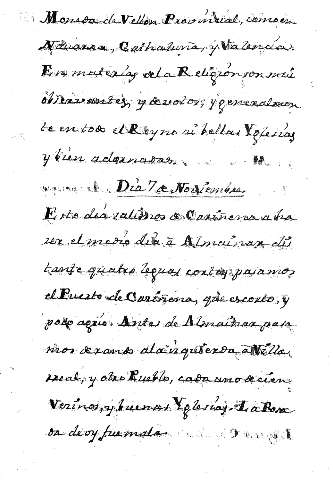 Moneda de Vellon Provincial, como en
Navarra, Cathaluña, y Valencia.
En materias de la Religión son mui
observantes, y devotos; y generalmen
te en todo el Reyno ai bellas Yglesias
y bien adornadas.
Dia 7 de Noviembre
Este dia salimos de Cariñena a ha
zer el medio dia à Almainar dis
tante quatro leguas cortas, pasamos
el Puerto de Cariñena, que es corto, y
poco agrio. Antes de Almainar pasa
mos dexando a la izquierda à Villa
real, y otro Pueblo, cada uno de cien
Vecinos, y buenas Yglesias. La Posa
da de oy fue mala